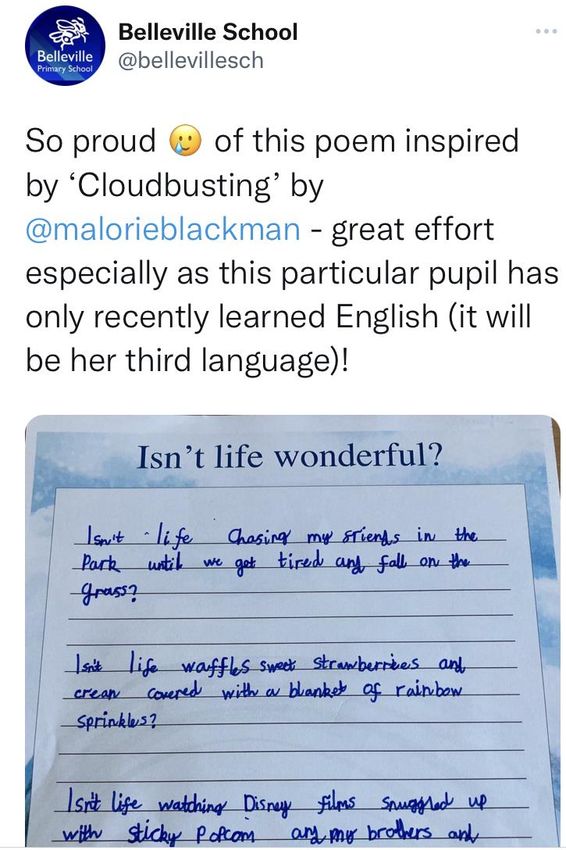 Belleville School
@bellevillesch
Belleville
Primary School
So proud 🥲 of this poem inspired
by ‘Cloudbusting’ by
@malorieblackman - great effort
especially as this particular pupil has
only recently learned English (it will
be her third language)!
Isn’t life wonderful?
Isn't life Chasing my friends in the
Park until we get tired and fall on the
grass?
Isn't life waffles sweet strawberries and
crean covered with a blanket of rainbow
sprinkles?
Isn't life watching Disney films snuggled up
with sticky Potcom and my brothers and